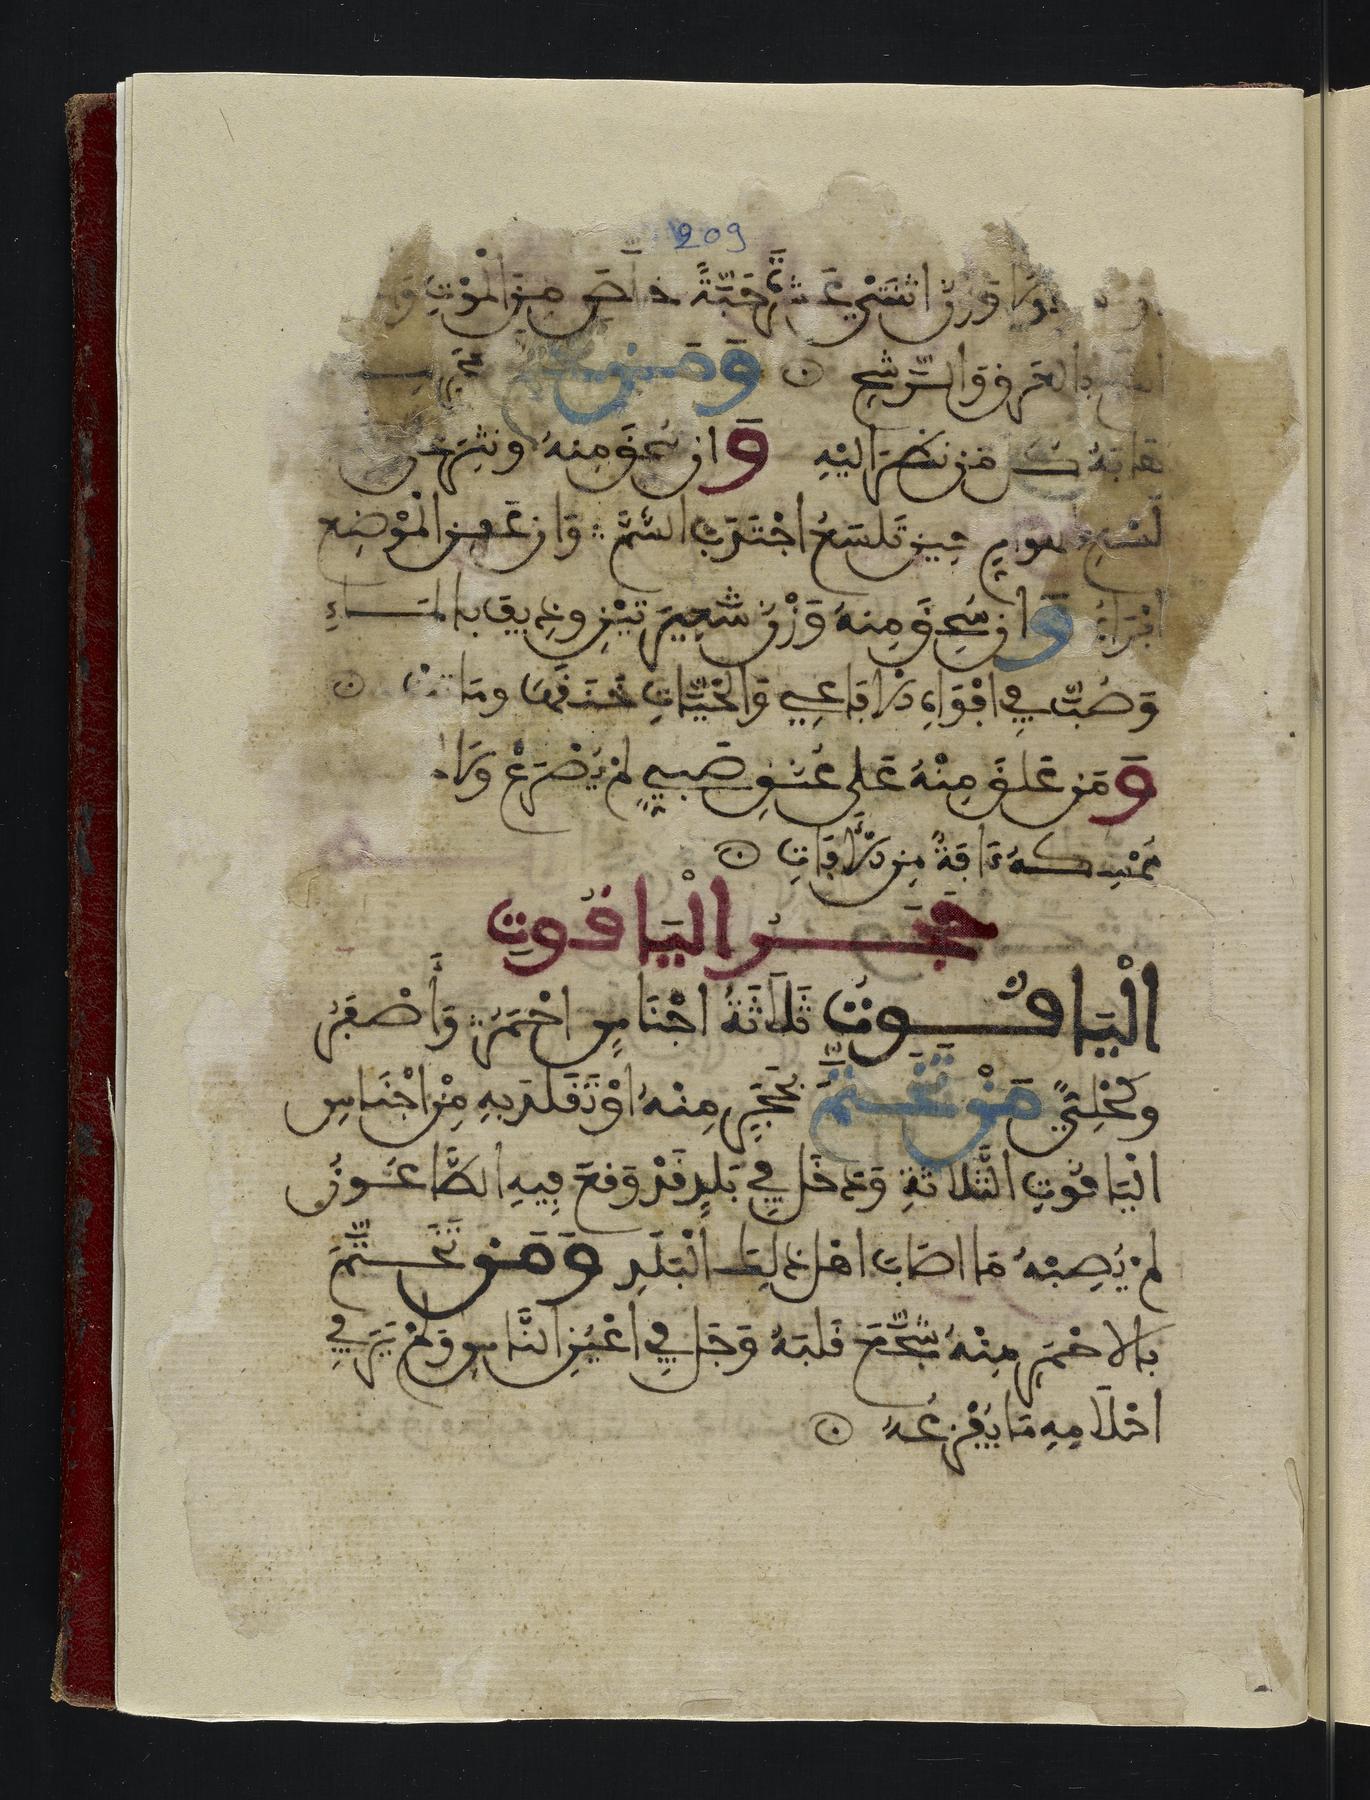 209
وزن اثنتي عشرة حبة خلص من الموت
بالعرق والرشح ⊙ ومن
كل من نظر اليه وان سحق منه ونثر على
لسع الهوام حين تلسع اجتذب السم وان عفن الموضع
ابراه وان سحق منه وزن شعيرتين وذيق بالماء
وصب في افواه الافاعي والحيات خنقها وماتت ⊙
ومن علق منه على عنق صبي لم يصرع ولا
تمسكه ءافة من الافات ⊙
حجر الياقوت
الياقوت ثلاثة اجناس احمر وأصفر
وكحلي من تختم بحجر منه او تقلد به من اجناس
الياقوت الثلاثة ودخل في بلد قد وقع فيه الطاعون
لم يصبه ما اصاب اهل ذلك البلد ومن تختم
بالاحمر منه شجع قلبه وجل في اعين الناس ولم ير في
احلامه ما يفزعه ⊙